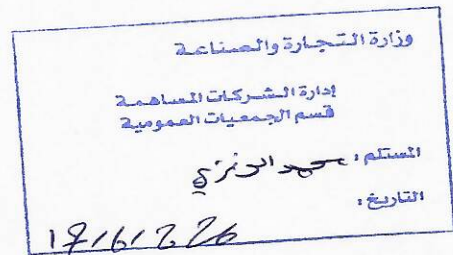 وزارة التجارة والصناعة
إدارة الشركات المساهمة
قسم الجمعيات العمومية
المستلم : محمد العنزي
التاريخ :
17/6/2026